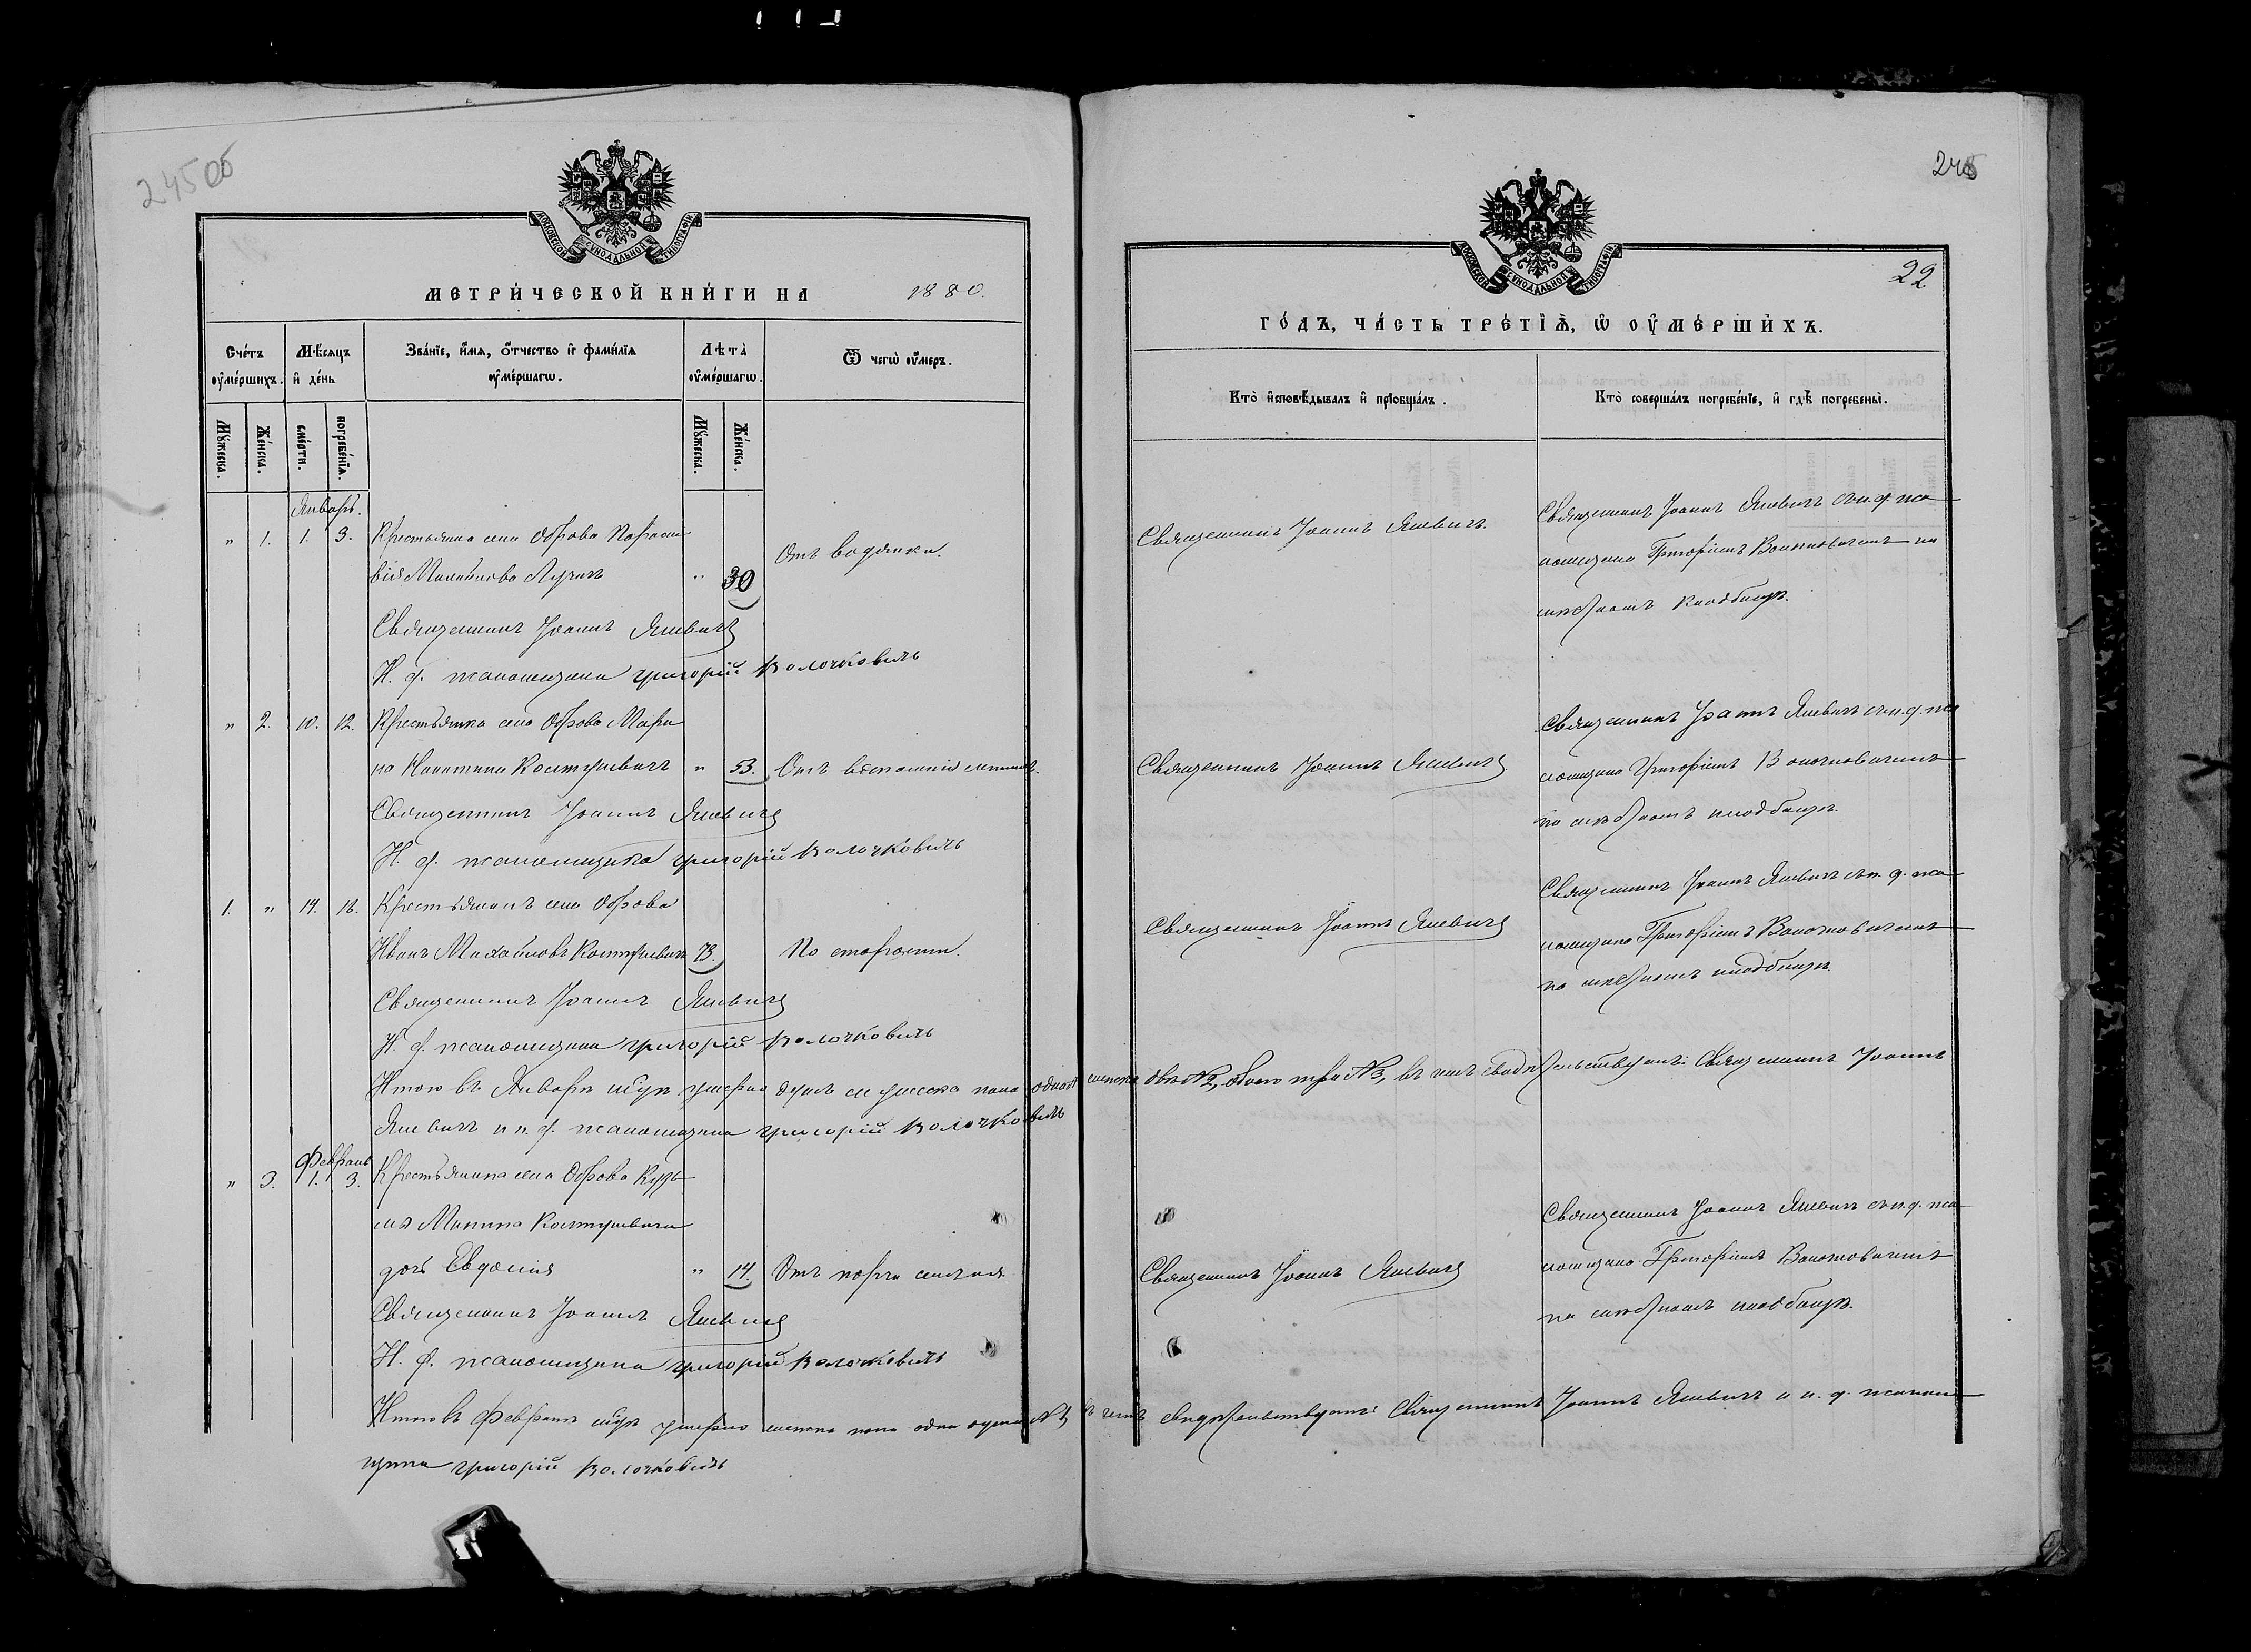 245об
МОСКОВСКОЙ СѴНОДАЛЬНОЙ ТИПОГРАФІИ
МЕТРИ́ЧЕСКОЙ КНИ́ГИ НА 1880.
Сче́тъ оу҆ме́ршихъ.
Мѣ́сяцъ и҆ де́нь
Зва́нїе, и҆́мѧ, ѻ҆́тчество и҆ фами́лїѧ оу҆ме́ршагѡ.
Лѣ́та̀ оу҆ме́ршагѡ.
Ѿ чегѡ̀ оу҆́меръ.
Мꙋ́жеска.
Же́нска.
сме́рти.
погребе́нїѧ.
Мꙋ́жеска.
Же́нска.
Январь.
" 1. 1. 3. Крестьянка села Оброва Параске
вія Михайлова Лучик " 30 Отъ водянки.
Священникъ Іоаннъ Яневичъ
И. д. псаломщика Григорій Волочковичъ
" 2. 10. 12. Крестьянка села Оброва Мари
на Костусевичъ " 53. Отъ воспаленія
Священникъ Іоаннъ Яневичъ
И. д. псаломщика Григорій Волочковичъ
1. " 14. 16. Крестьянинъ села Оброва
Иванъ Михайловъ Костусевичъ 73. По старости.
Священникъ Іоаннъ Яневичъ
И. д. псаломщика Григорій Волочковичъ
Итого въ Январѣ м-цѣ умерло душъ мужеска пола одна №1, женска двѣ №2, обоего три №3, въ чемъ свидѣтельствуютъ: Священникъ Іоаннъ
Яневичъ и и. д. псаломщика Григорій Волочковичъ
Февраль
" 3. 1. 3. Крестьянина села Оброва Кузь
мы Костусевича
дочь Евдокія " 14. Отъ
Священникъ Іоаннъ Яневичъ
И. д. псаломщика Григорій Волочковичъ
Итого въ Февралѣ м-цѣ умерло женска пола одна душа №1, въ чемъ свидѣтельствуютъ: Священникъ Іоаннъ Яневичъ и и. д. псалом
щика Григорій Волочковичъ
22
МОСКОВСКОЙ СѴНОДАЛЬНОЙ ТИПОГРАФІИ
ГО́ДЪ, ЧА́СТЬ ТРЕ́ТЇѦ, Ѡ҆ ОУ҆МЕ́РШИХЪ.
Кто̀ и҆сповѣ́дывалъ и҆ прїобща́лъ.
Кто̀ соверша́лъ погребе́нїе, и҆ гдѣ̀ погребены̀.
Священникъ Іоаннъ Яневичъ.
Священникъ Іоаннъ Яневичъ съ и. д. пса
ломщика Григоріемъ Волочковичемъ на
мѣстномъ кладбищѣ.
Священникъ Іоаннъ Яневичъ
Священникъ Іоаннъ Яневичъ съ и. д. пса
ломщика Григоріемъ Волочковичемъ
на мѣстномъ кладбищѣ.
Священникъ Іоаннъ Яневичъ
Священникъ Іоаннъ Яневичъ съ и. д. пса
ломщика Григоріемъ Волочковичемъ
на мѣстномъ кладбищѣ.
Священникъ Іоаннъ Яневичъ
Священникъ Іоаннъ Яневичъ съ и. д. пса
ломщика Григоріемъ Волочковичемъ
на мѣстномъ кладбищѣ.